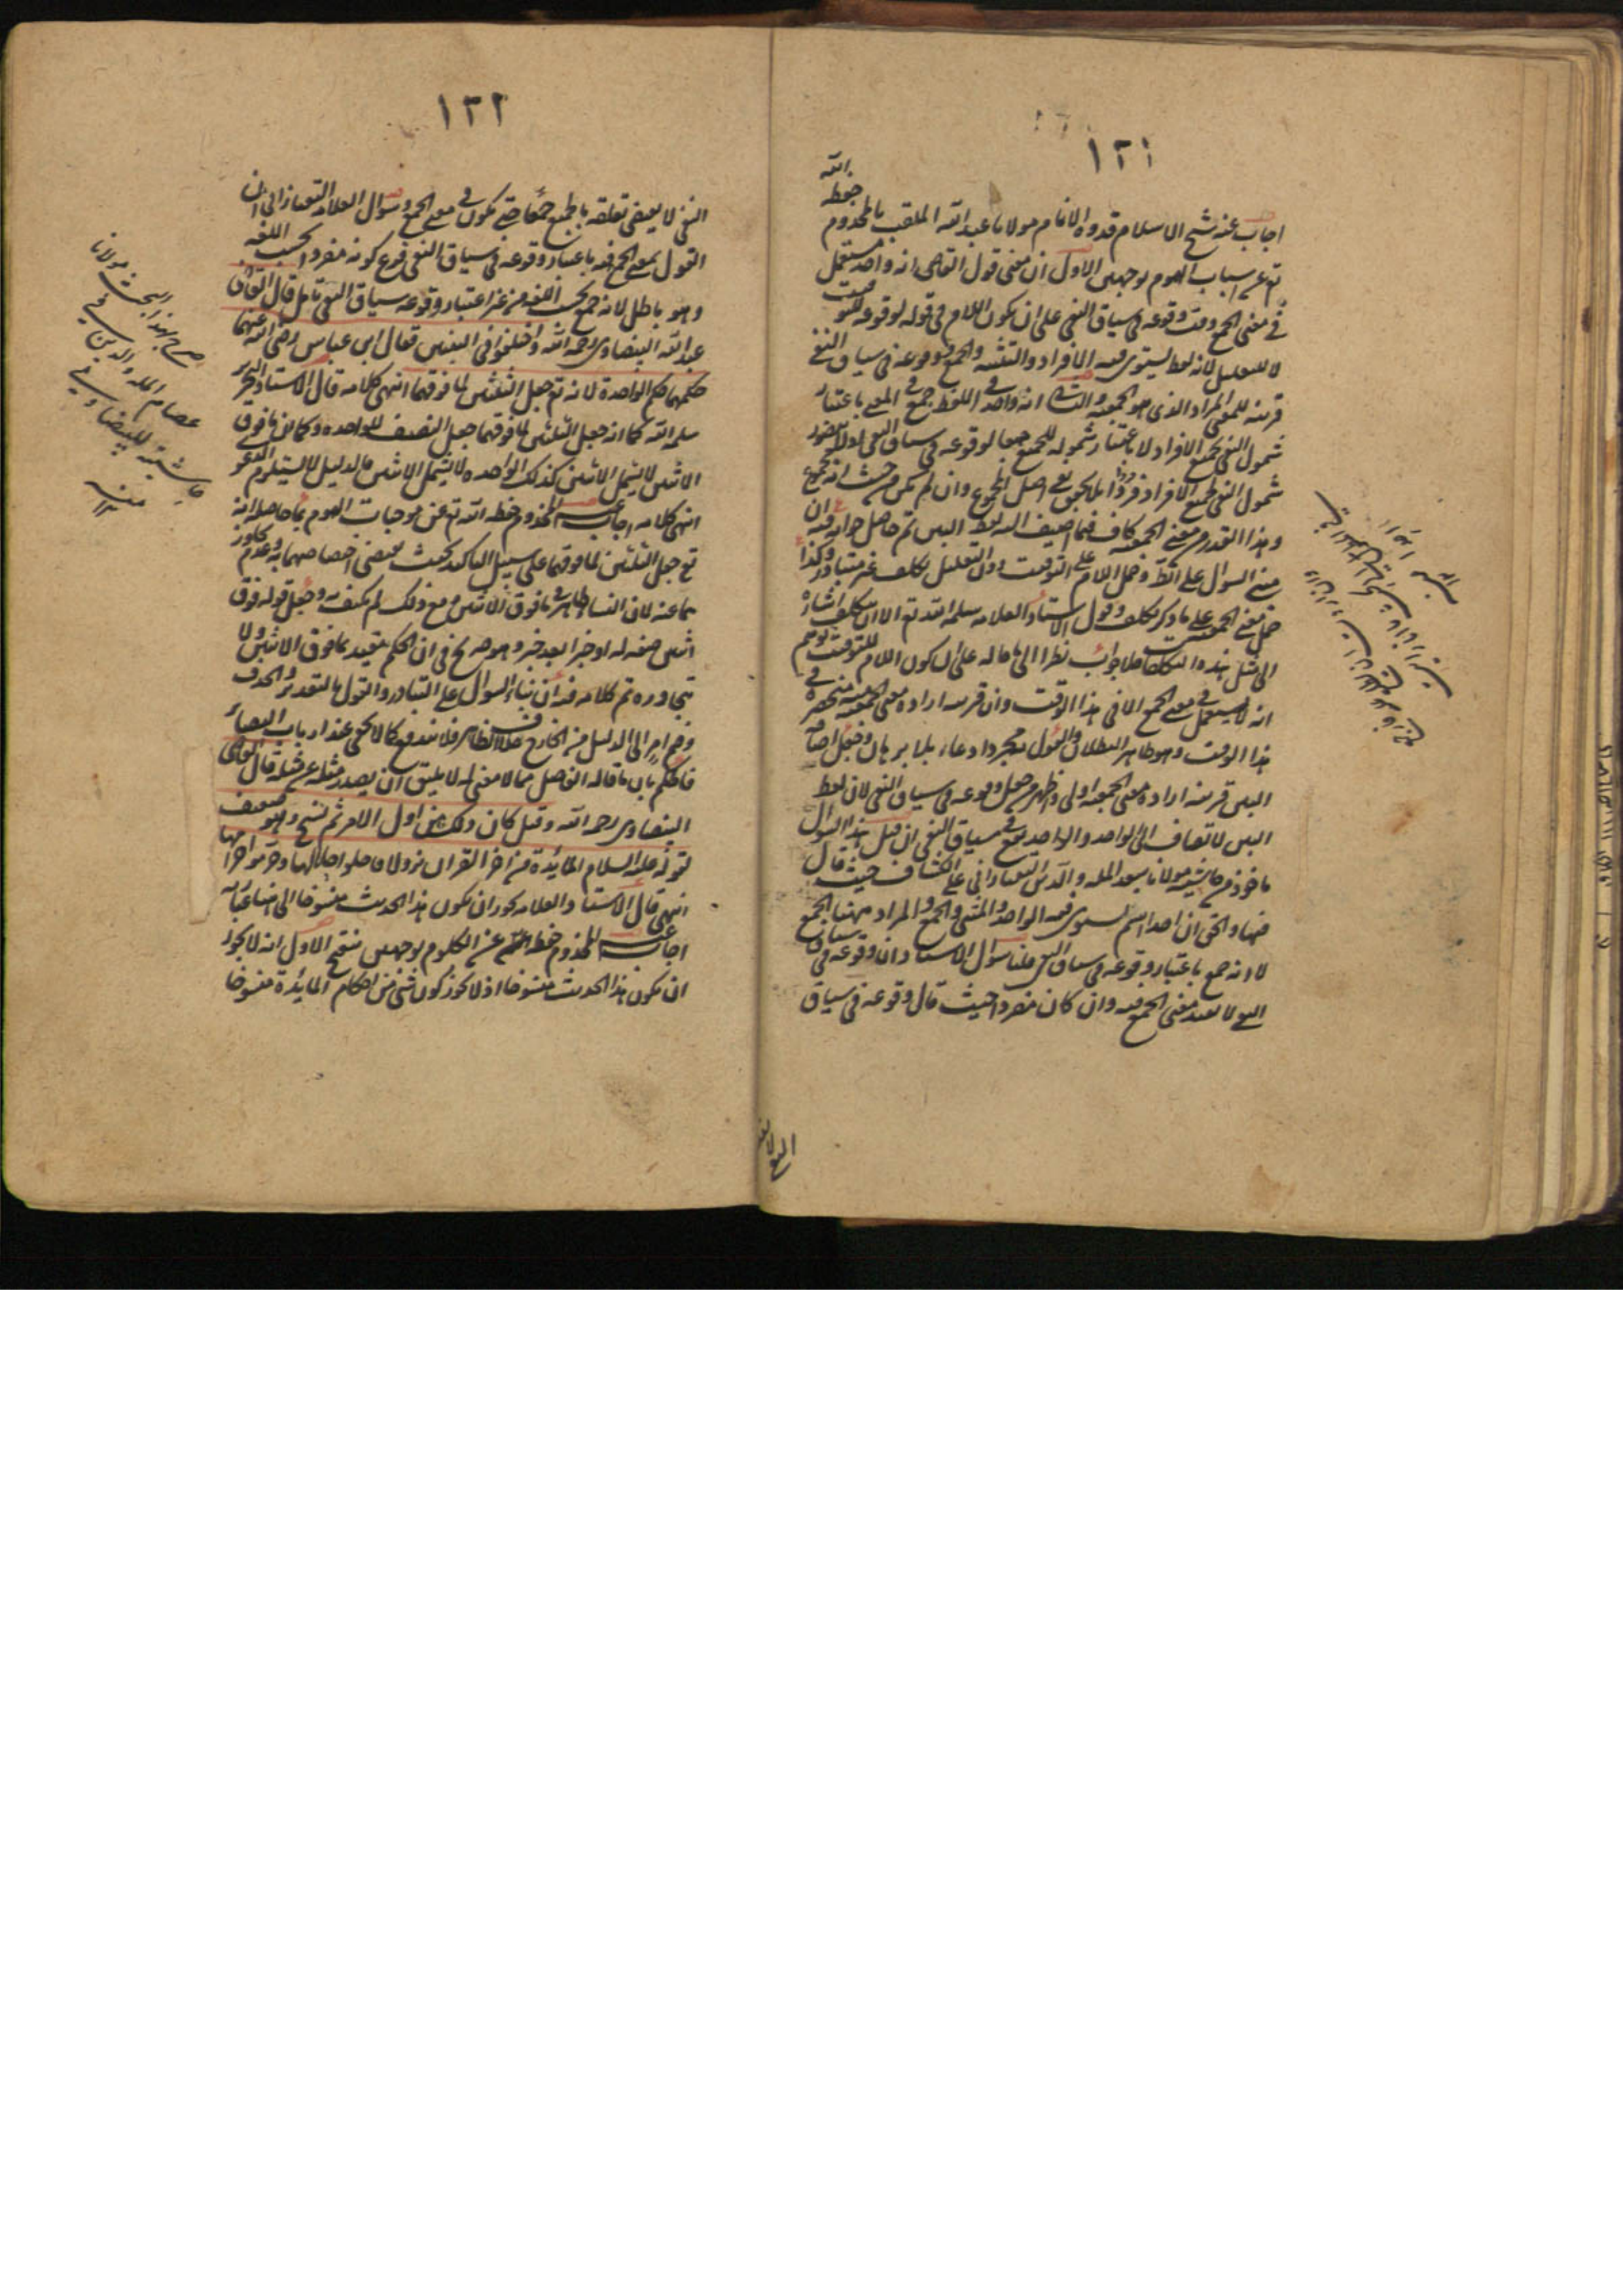 ١٢١
اجاب عنه شيخ الاسلام قدوة الانام مولانا عبد الله الملقب بالمخدوم حفظه الله
تع عن اسباب الهموم بوجهين الاول ان معنى قول القاضى انه واحد مستعمل
فى معنى الجمع وقت وقوعه فى سياق النفى على ان يكون اللام فى قوله لوقوعه للتوقيت
لا للتعليل لانه لفظ يستوى فيه الافراد والتثنية والجمع ووقوعه فى سياق النفى
قرينة للمعنى المراد الذى هو الجمعية والثانى انه واحد فى اللفظ جمع فى المعنى باعتبار
شمول النفى لجميع الافراد لا باعتبار شموله للجميع جمعا لوقوعه فى سياق النفى
شمول النفى لجميع الافراد فردا فردا بلا تحقق معنى اصل المجموع وان لم يكن من حيث انه مجموع
وهذا القدر من معنى الجمعية كاف فيما اضيف اليه لفظ البين تم حاصل جوابه فيه ان
مبنى السوال على المتبادر وحمل اللام على التوقيت دون التعليل تكلف غير متبادر وكذا
حمل معنى الجمعية على ما ذكر تكلف وقول الاستاد العلامه سلمه الله تع الا ان يتكلف اشارة
الى مثل هذه التكلفات فلا جواب نظرا الى ما ماله على ان كون اللام للتوقيت يوهم
انه لا يستعمل فى معنى الجمع الا فى هذا الوقت وان قرينة ارادة معنى الجمعية منحصرة فى
هذا الوقت وهو ظاهر البطلان والقول بمجرد ادعاء بلا برهان وجعل اضافة
البين قرينة ارادة معنى الجمعية اولى واظهر من جعل وقوعه فى سياق النفى لان لفظ
البين لا تضاف الى الواحد والواحد يقع فى سياق النفى ان قيل هذا السوال
ماخوذ من حاشية مولانا سعد الملة والدين التفتازانى على الكشاف حيث قال
فيها والحق ان احد اسم يستوى فيه الواحد والمثنى والجمع والمراد ههنا الجمع
لا انه جمع باعتبار وقوعه فى سياق النفى قلنا سوال الاستاد ان وقوعه فى سياق
النفى لا يفيد معنى الجمع فيه وان كان مفردا حيث قال وقوعه فى سياق
النفى لا يفيد
١٢٢
النفى لا يقتضى تعلقه بالجميع جمعا حتى يكون فى معنى الجمع وسوال العلامة التفتازانى ان
القول بمعنى الجمع فيه باعتبار وقوعه فى سياق النفى فرع كونه مفردا بحسب اللغة
وهو باطل لانه جمع بحسب اللغة من غير اعتبار وقوعه سياق النفى تامل قال القاضى
عبد الله البيضاوى رحمه الله واختلفوا فى البنتين فقال ابن عباس رضى الله عنهما
حكمهما حكم الواحدة لانه تع جعل الثلثين لما فوقهما انتهى كلامه قال الاستاد النحرير
سلمه الله كما انه جعل الثلثين لما فوقهما جعل النصف للواحدة وكما ان ما فوق
الاثنين لا يشمل الاثنين كذلك الواحدة لا يشمل الاثنين فالدليل لا يستلزم المدعى
انتهى كلامه اجاب عنه المخدوم حفظه الله تع عن موجبات الهموم بما حاصله انه
تع جعل الثلثين لما فوقهما على سبيل التاكيد بحيث يقتضى اختصاصهما به وعدم تجاوز
هما عنه لان النساء ظاهرة ما فوق الاثنين ومع ذلك لم يكتف به وجعل قوله فوق
اثنتين صفة له او خبرا بعد خبر وهو صريح فى ان الحكم مقيد بما فوق الاثنين ولا
يتجاوزه تم كلامه فيه ان بناء السوال على التبادر والقول بالتقدير والحذف
وضم امر الى الدليل من الخارج خلاف الظاهر فلا يندفع كما لا يخفى عند ارباب البصائر
فالحكم بان ما قاله الفاضل مما لا معنى له لا يليق ان يصدر مثله عن مثله قال القاضى
البيضاوى رحمه الله وقيل كان ذلك فى اول الامر ثم نسخ وهو ضعيف
لقوله عليه السلام المائدة من اخر القران نزولا فاحلوا حلالها وحرموا حرامها
انتهى قال الاستاد العلامه يجوز ان يكون هذا الحديث منسوخا الى
اجاب عنه المخدوم حفظه الله عن الكلوم بوجهين منقح الاول انه لا يجوز
ان يكون هذا الحديث منسوخا اذ لا يجوز كون شئ من احكام المائدة منسوخا
صرح بهذا البحث مولانا
عصام الملة والدين فى
حاشيته للبيضاوى
منه